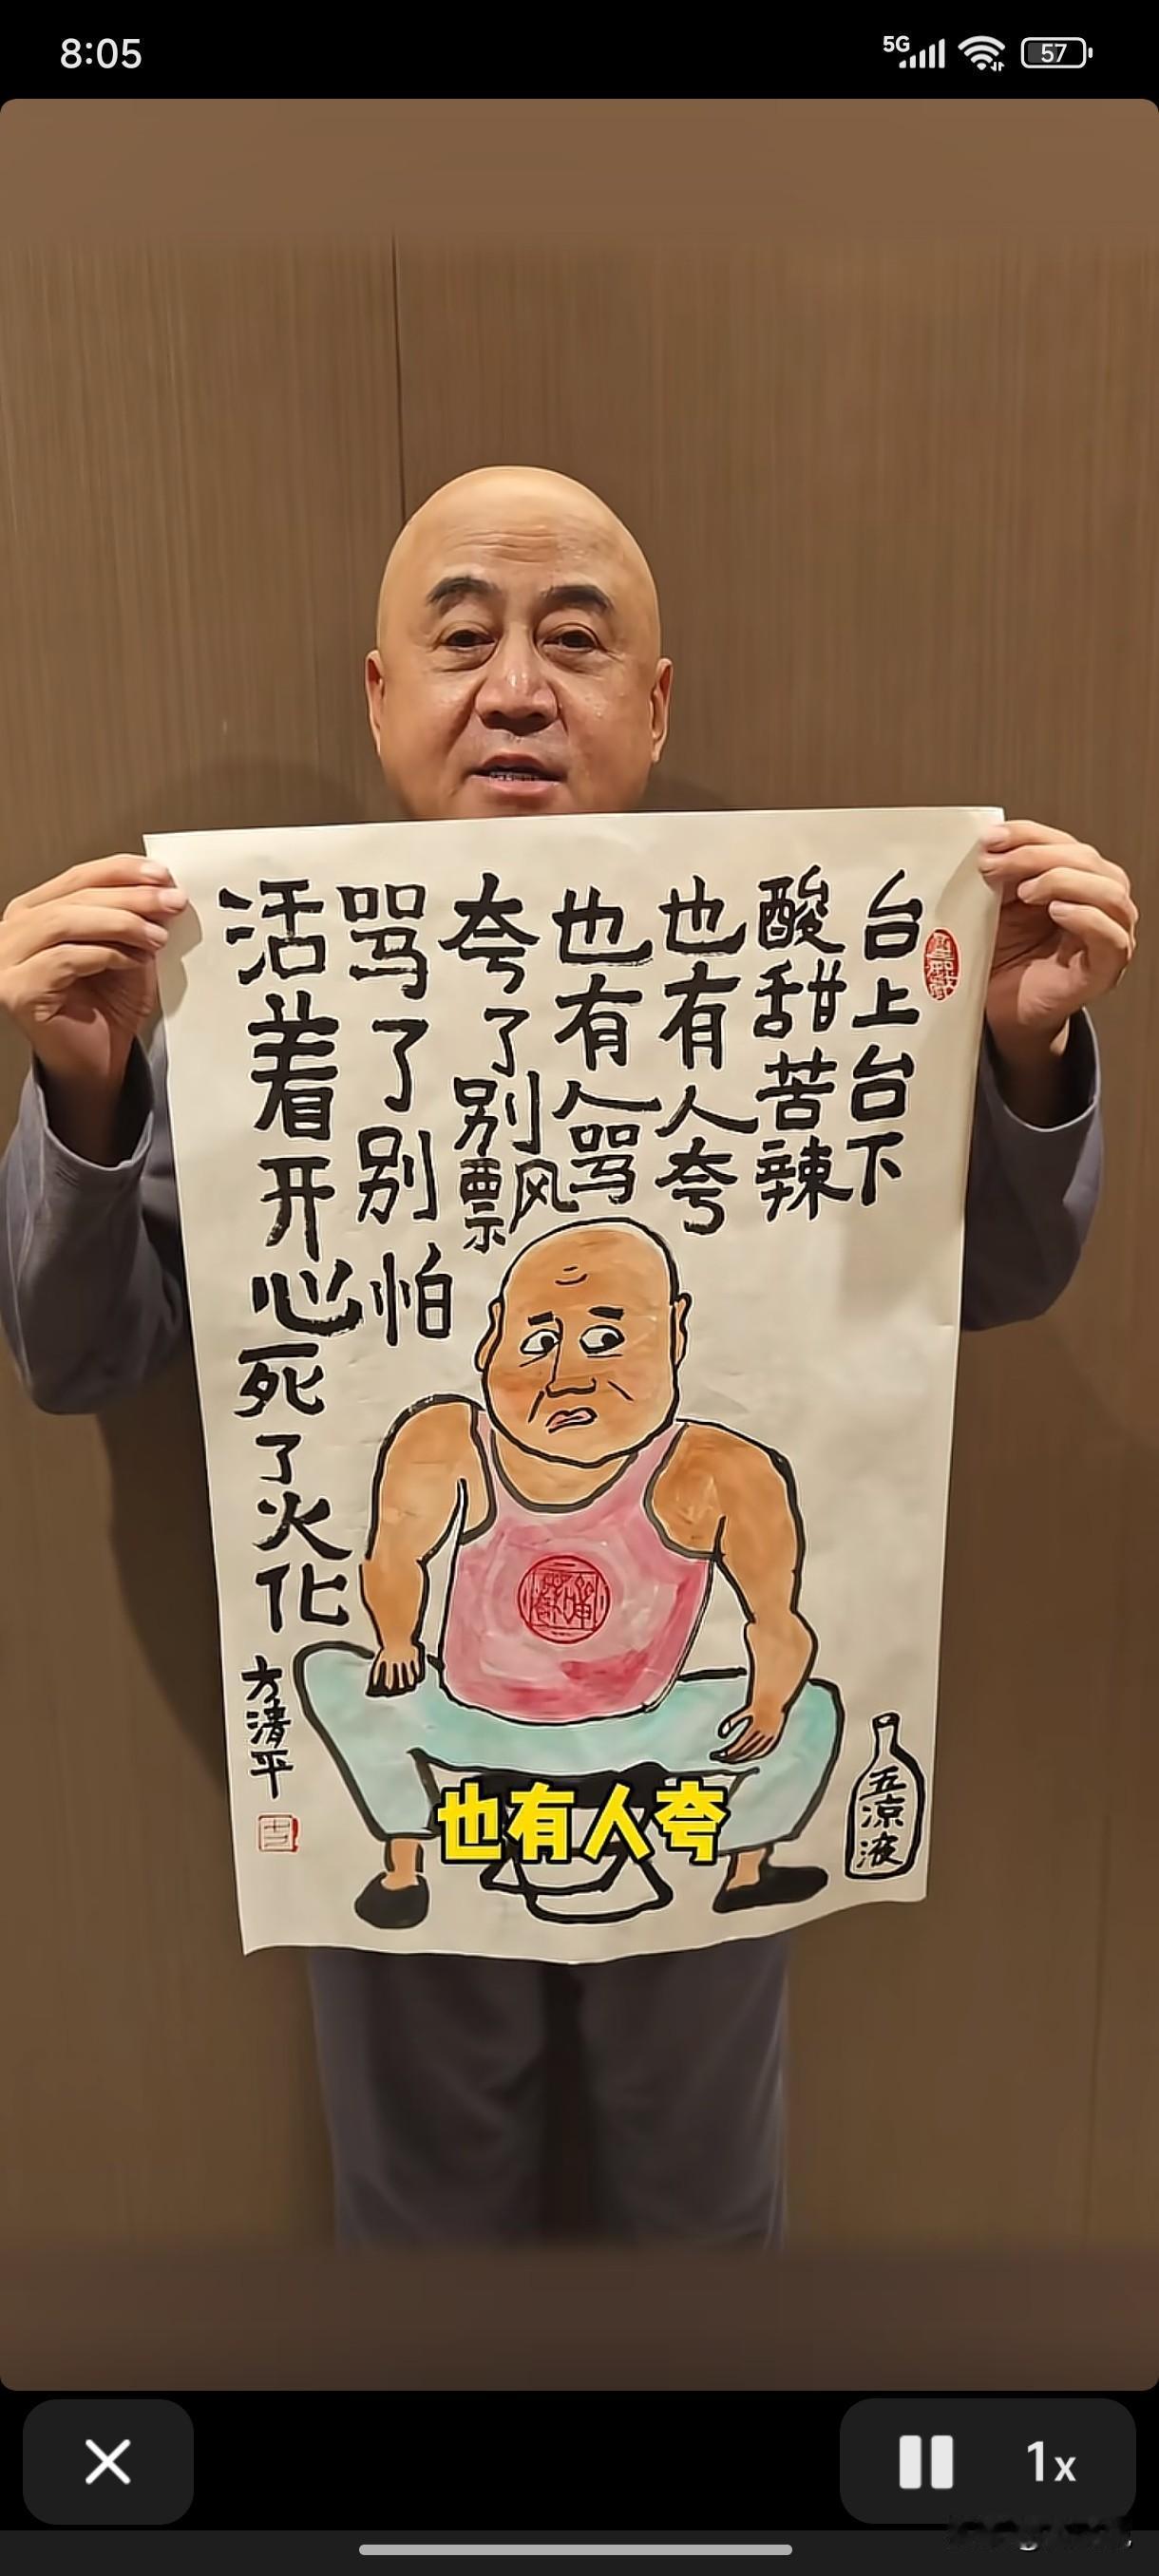 8:05
5G
57
台上台下
酸甜苦辣
也有人夸
也有人骂
夸了别飘
骂了别怕
活着开心死了火化
方清平
五凉液
也有人夸
1x